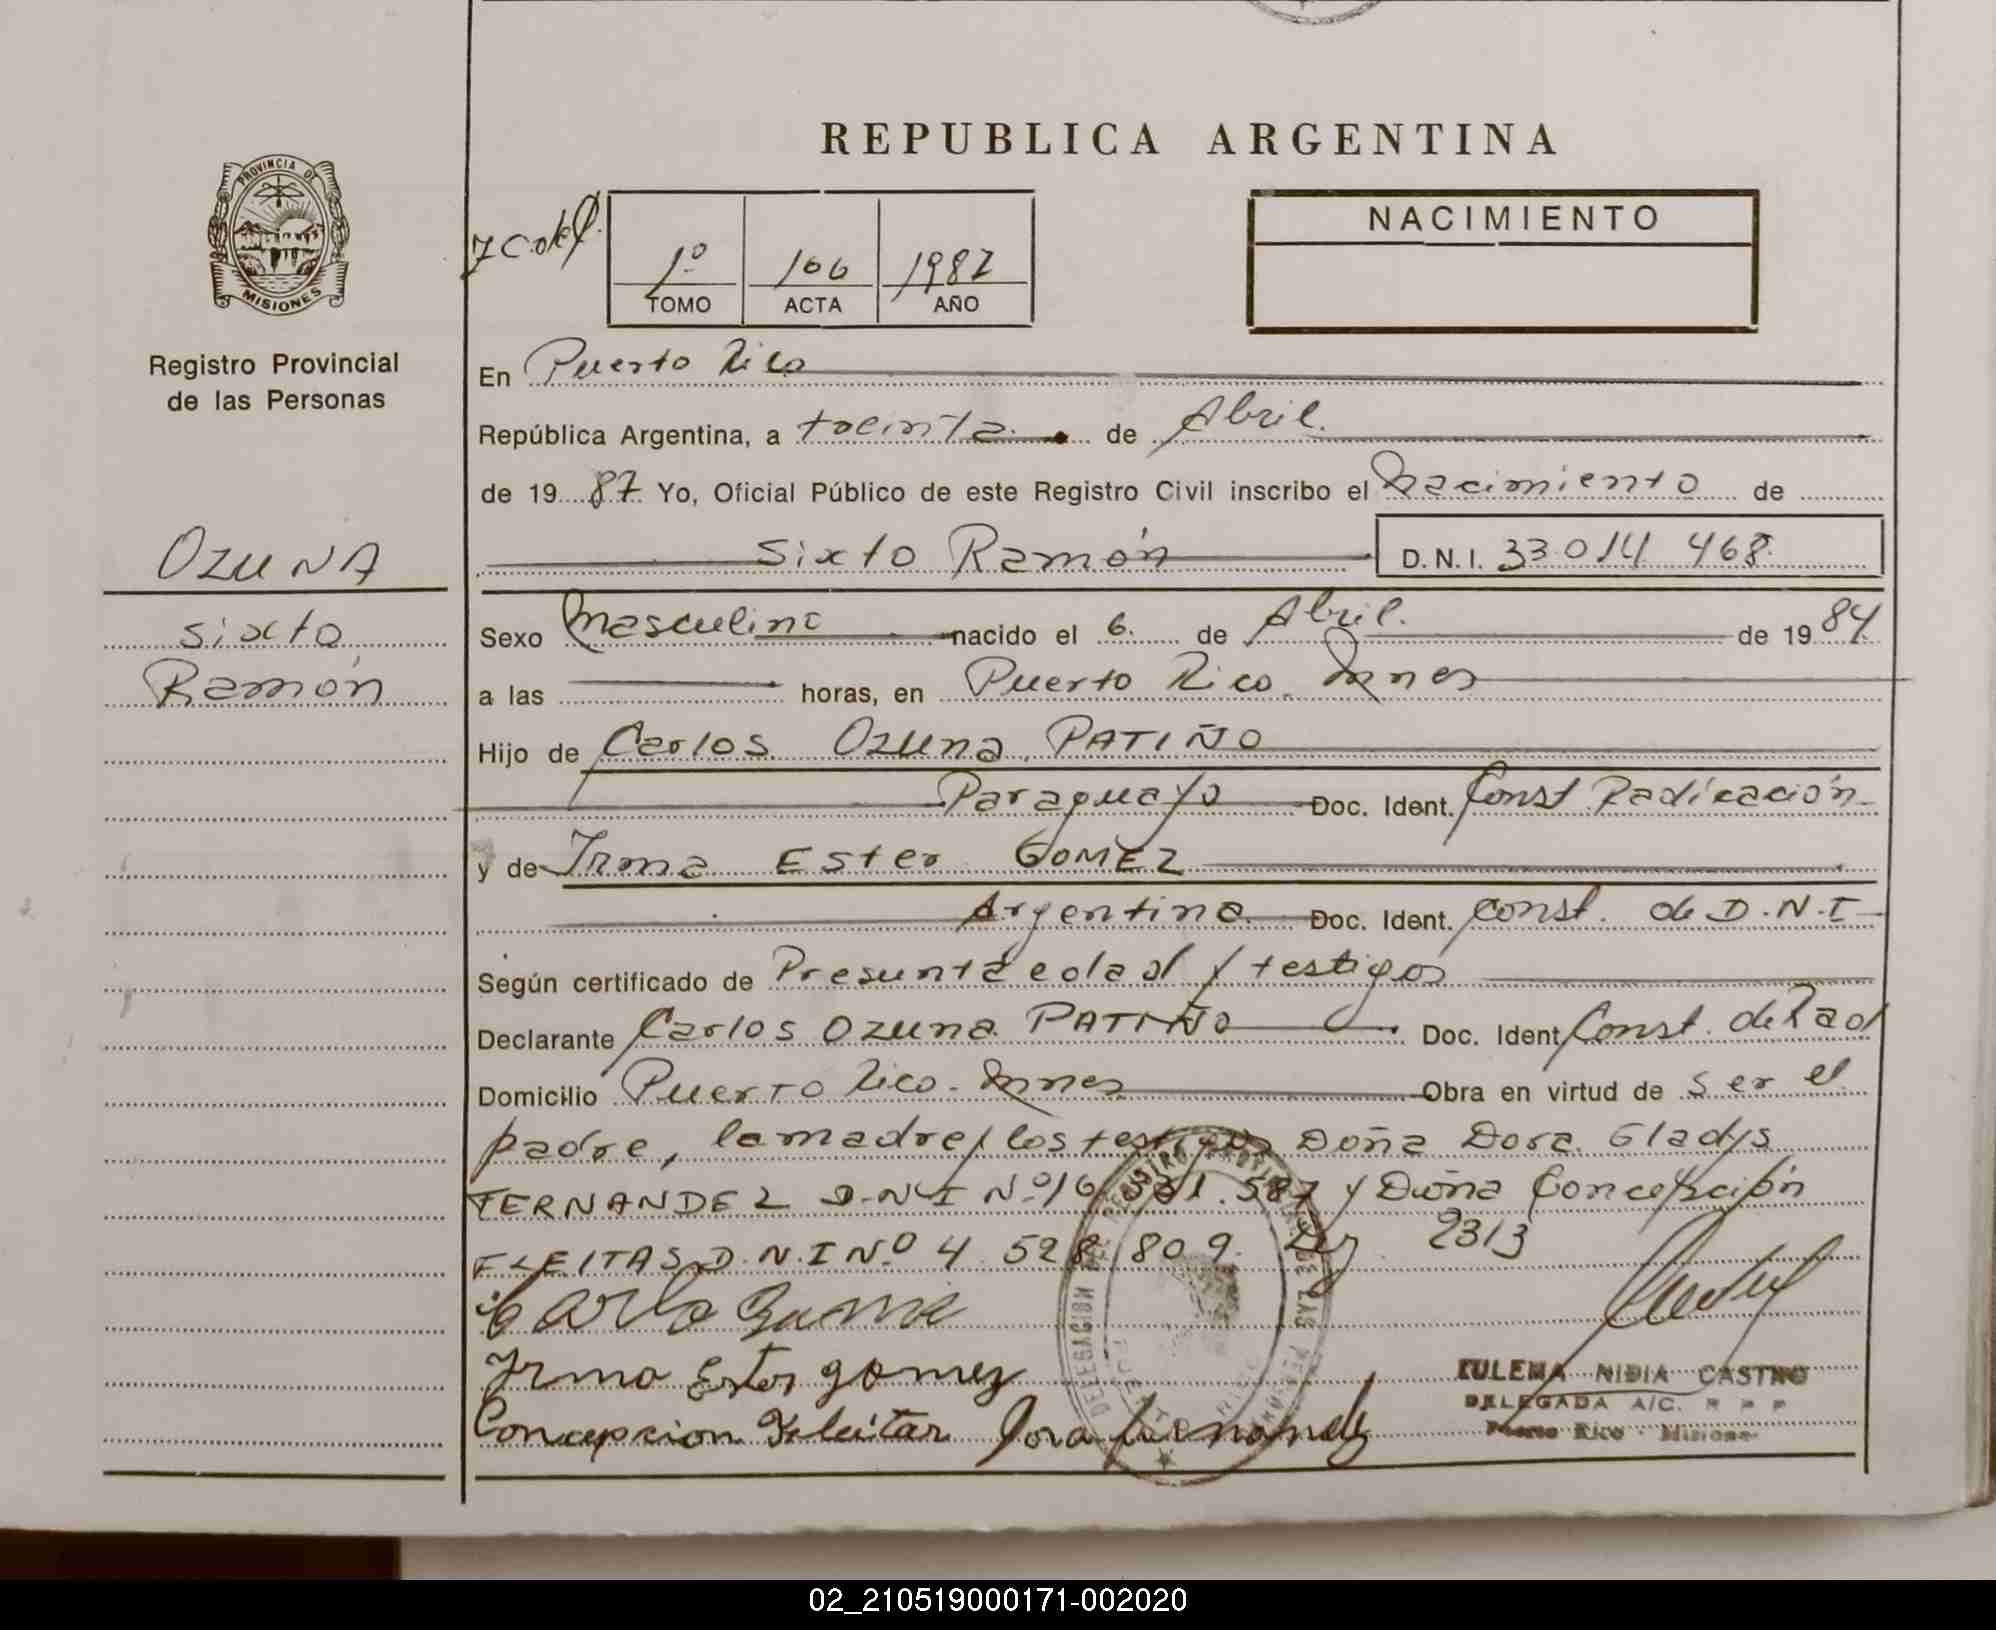 REPUBLICA ARGENTINA
PROVINCIA DE
MISIONES
Registro Provincial
de las Personas
OZUNA
Sixto
Ramón
1º 106 1987
TOMO ACTA AÑO
NACIMIENTO
En Puerto Rico
República Argentina, a treinta de Abril.
de 19 87 Yo, Oficial Público de este Registro Civil inscribo el Nacimiento de
Sixto Ramón D.N.I. 33.014.468.
Sexo Masculino nacido el 6 de Abril. de 19 84
a las horas, en Puerto Rico. Mnes
Hijo de Carlos Ozuna PATIÑO
Paraguayo Doc. Ident. Const Radicación
y de Irma Ester GOMEZ
Argentina Doc. Ident. Const. de D.N.I
Según certificado de Presunta edad y testigos
Declarante Carlos Ozuna PATIÑO Doc. Ident Const. de Rad
Domicilio Puerto Rico - Mnes Obra en virtud de ser el
padre, la madre y los testigos Doña Dora Gladys
FERNANDEZ D.N.I Nº 16 581.587 y Doña Concepción
FLEITAS D.N.I Nº 4.528.809. Ley 2313
Irma Ester gomez
Concepcion Fleitas Dora Fernandez
ZULEMA NIDIA CASTRO
DELEGADA A/C. R P P
Puerto Rico - Misiones
DELEGACION DEL REGISTRO PROVINCIAL DE LAS PERSONAS
PUERTO RICO
02_210519000171-002020